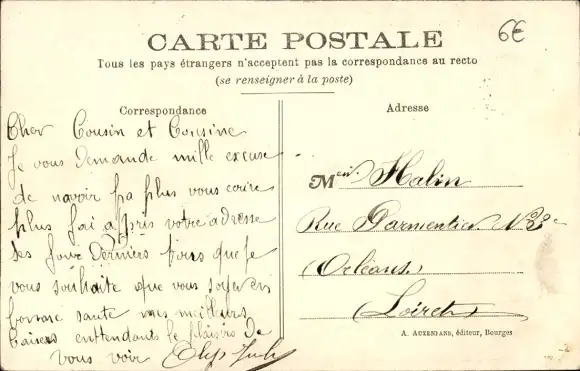 6€
CARTE POSTALE
Tous les pays étrangers n'acceptent pas la correspondance au recto
(se renseigner à la poste)
Correspondance
Cher Cousin et Cousine
Je vous demande mille excuse
de navoir pa plus vous ecrire
plus jai apris votre adresse
ses jour derniers je
vous souhaite que vous soyer en
bonne sante mes meilleurs
baisers enttendants le plaisirs de
vous voir
Adresse
M Halin
Rue Parmentier N
(Orléans.)
(Loiret)
A. AUXENFANS, éditeur, Bourges